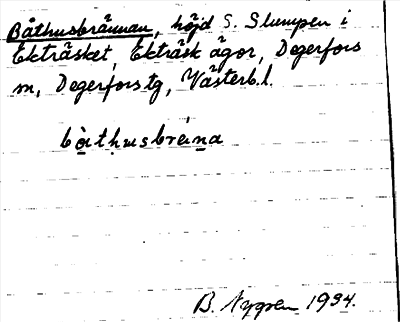 Båthusbrännan, höjd S. Slumpen i
Ekträsket, Ekträsk ägor, Degerfors
sn, Degerfors tg, Västerb. l.
bå̀thusbrä́na
B. Nygren 1934.